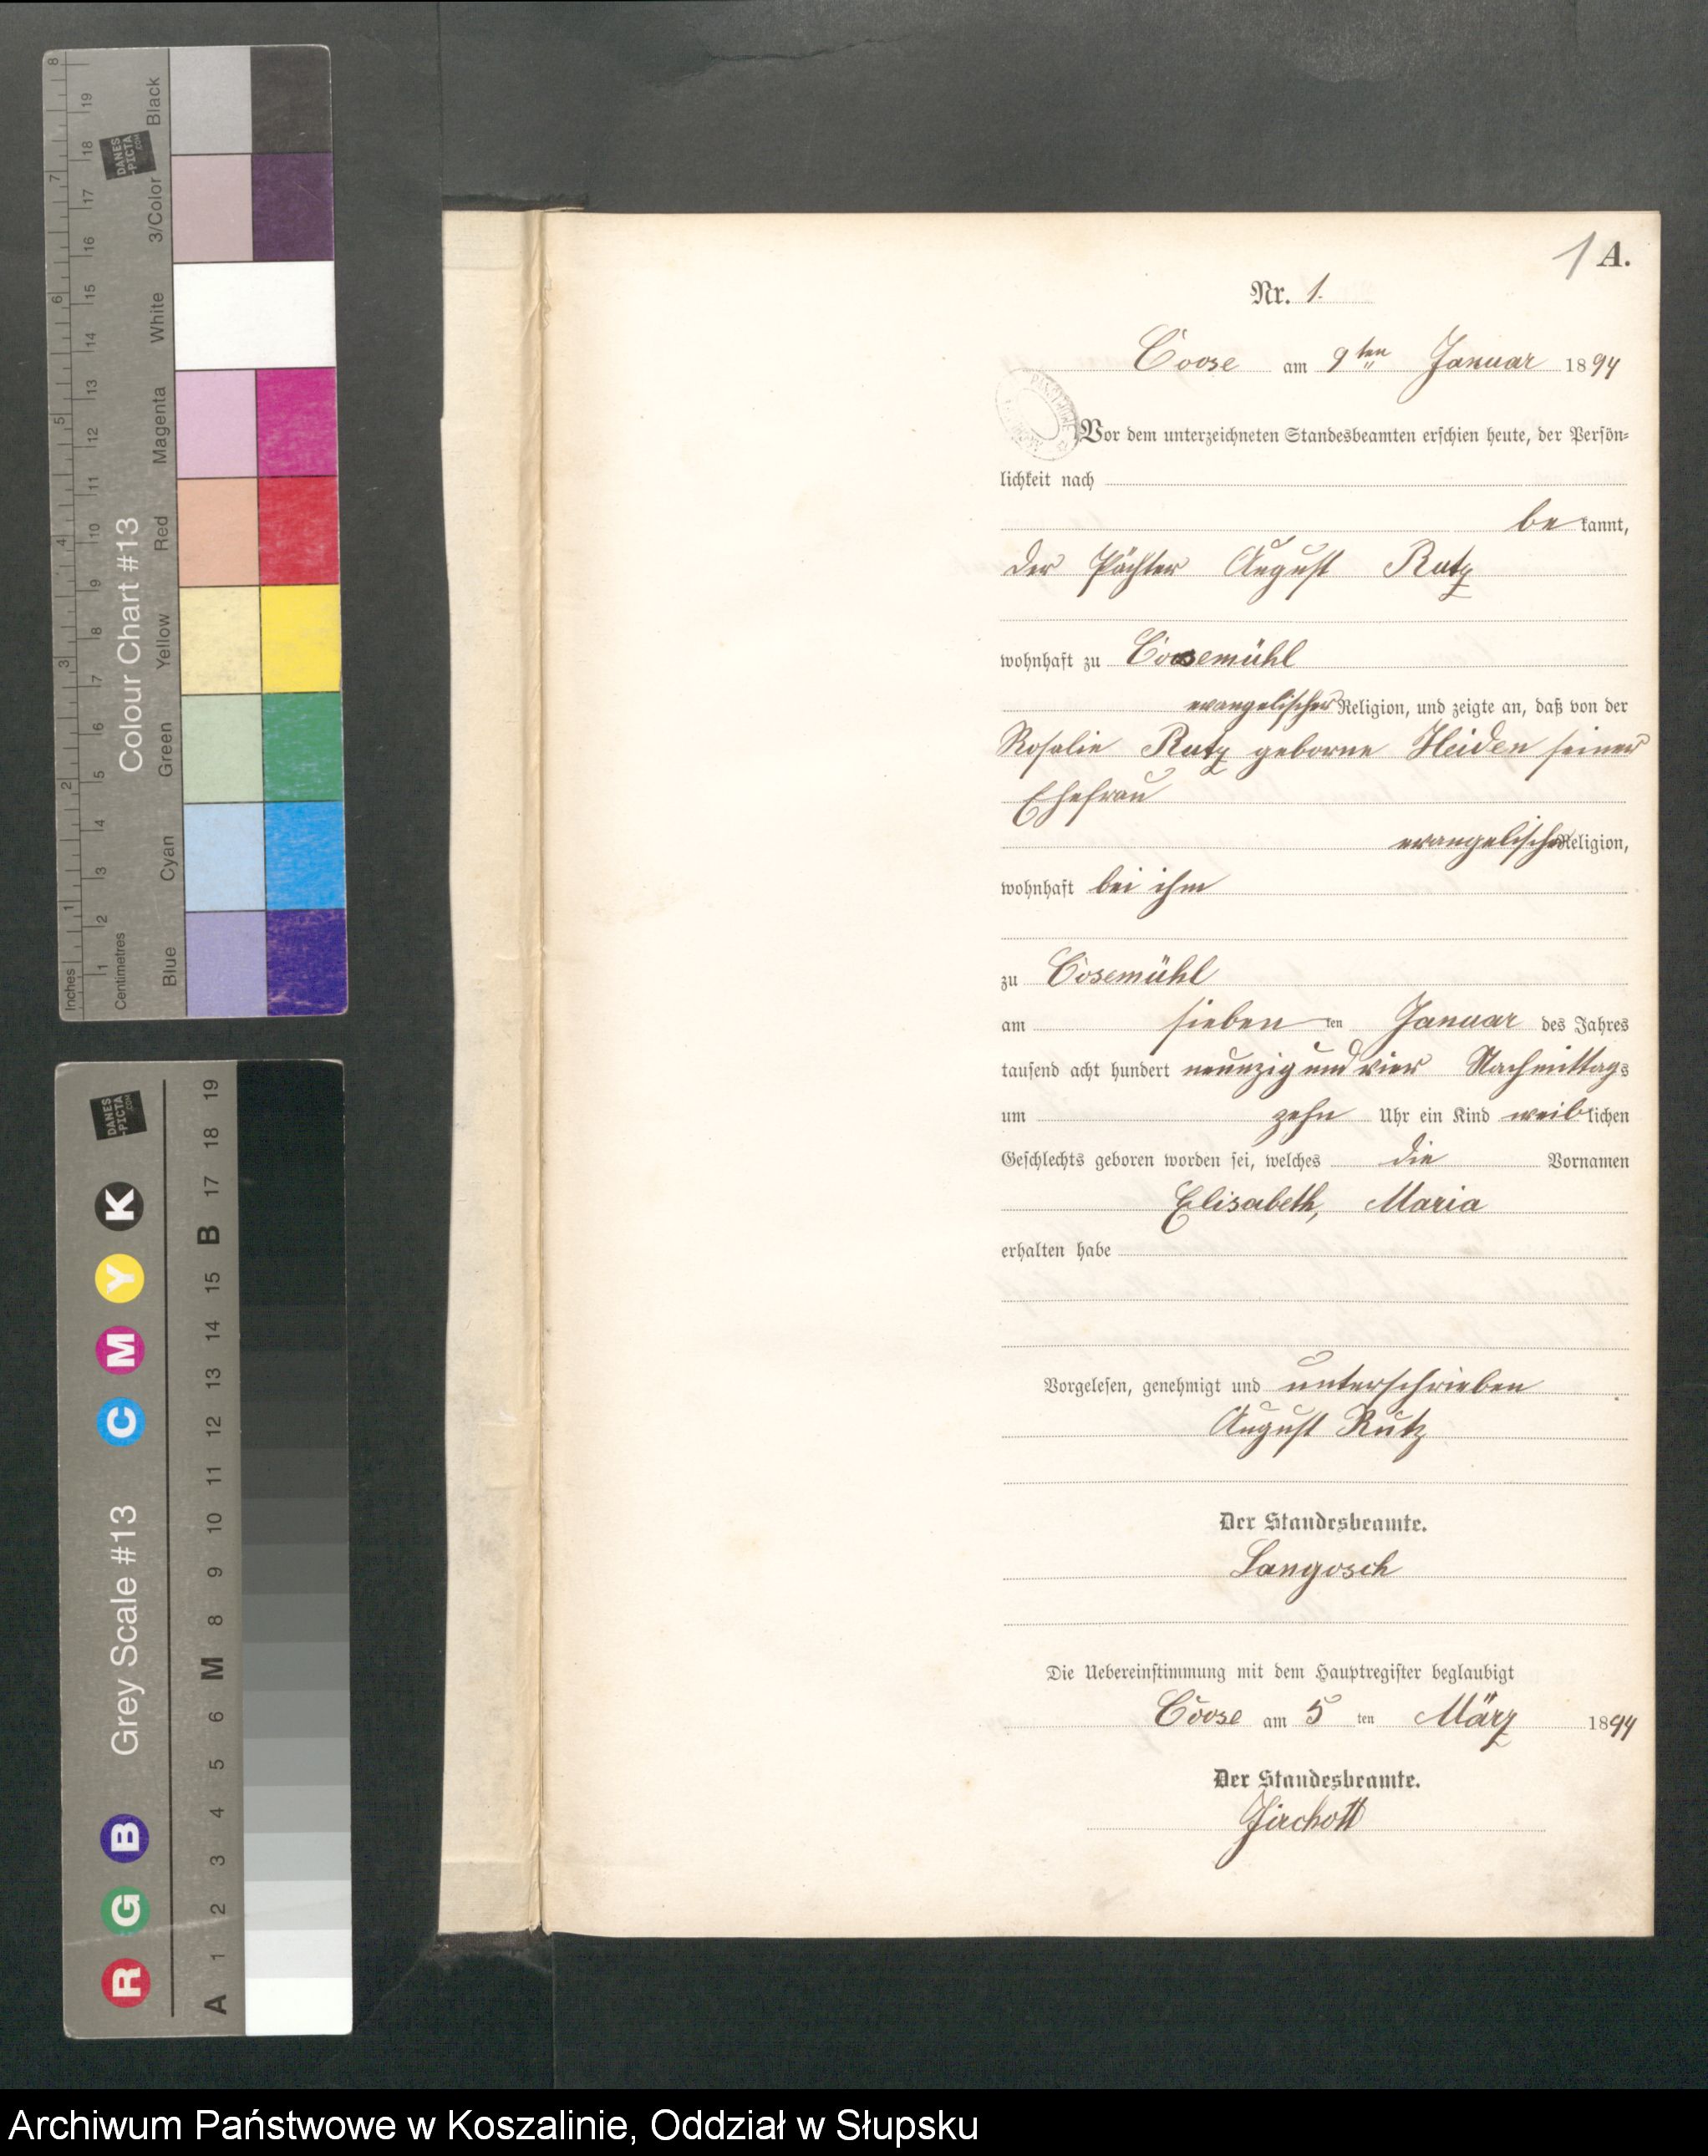 8
19
Black
DANES
-PICTA
.COM
18
7
17
3/Color
16
6
15
White
14
13
5
12
Magenta
11
10
Red
4
9
Colour Chart #13
8
Yellow
3
7
6
Green
2
5
4
Cyan
3
1
2
1
Inches
Centimetres
Blue
DANES
-PICTA
.COM
19
18
K
17
B
Y
15
14
M
13
C
12
11
10
Grey Scale #13
9
8
M
6
5
B
4
3
G
2
1
R
A
1 A.
Nr. 1.
Coose am 9ten Januar 1894
Vor dem unterzeichneten Standesbeamten erschien heute, der Persön-
lichkeit nach
be kannt,
der Pächter August Rutz
wohnhaft zu Coosemühl
evangelischer Religion, und zeigte an, daß von der
Rosalie Rutz geborne Heiden seiner
Ehefrau
evangelischer Religion,
wohnhaft bei ihm
zu Cosemühl
am sieben ten Januar des Jahres
tausend acht hundert neunzig und vier Nachmittags
um zehn Uhr ein Kind weiblichen
Geschlechts geboren worden sei, welches die Vornamen
Elisabeth, Maria
erhalten habe
Vorgelesen, genehmigt und unterschrieben
August Rutz
Der Standesbeamte.
Langosch
Die Uebereinstimmung mit dem Hauptregister beglaubigt
Coose am 5 ten März 1894
Der Standesbeamte.
Archiwum Państwowe w Koszalinie, Oddział w Słupsku